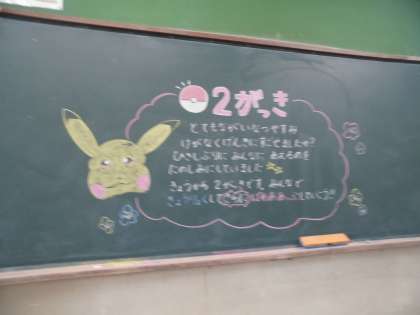 2がっき
とてもながいなつやすみ
けがなくげんきにすごせましたか?
ひさしぶりに みんなに あえるのを
たのしみにしていました
きょうから 2がっきです みんなで
きょうりょくして